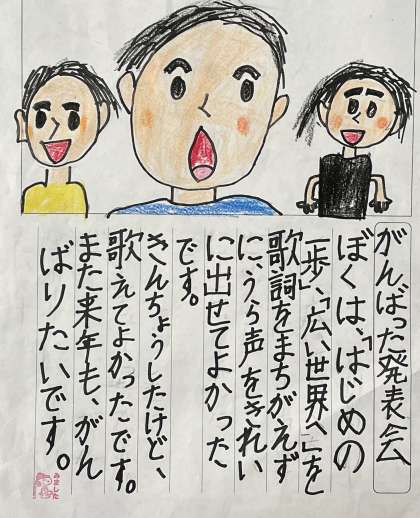 がんばった発表会
ぼくは、「はじめの
一歩」、「広い世界へ」を
歌詞をまちがえず
に、うら声をきれい
に出せてよかった
です。
きんちょうしたけど、
歌えてよかったです。
また来年も、がん
ばりたいです。
みました